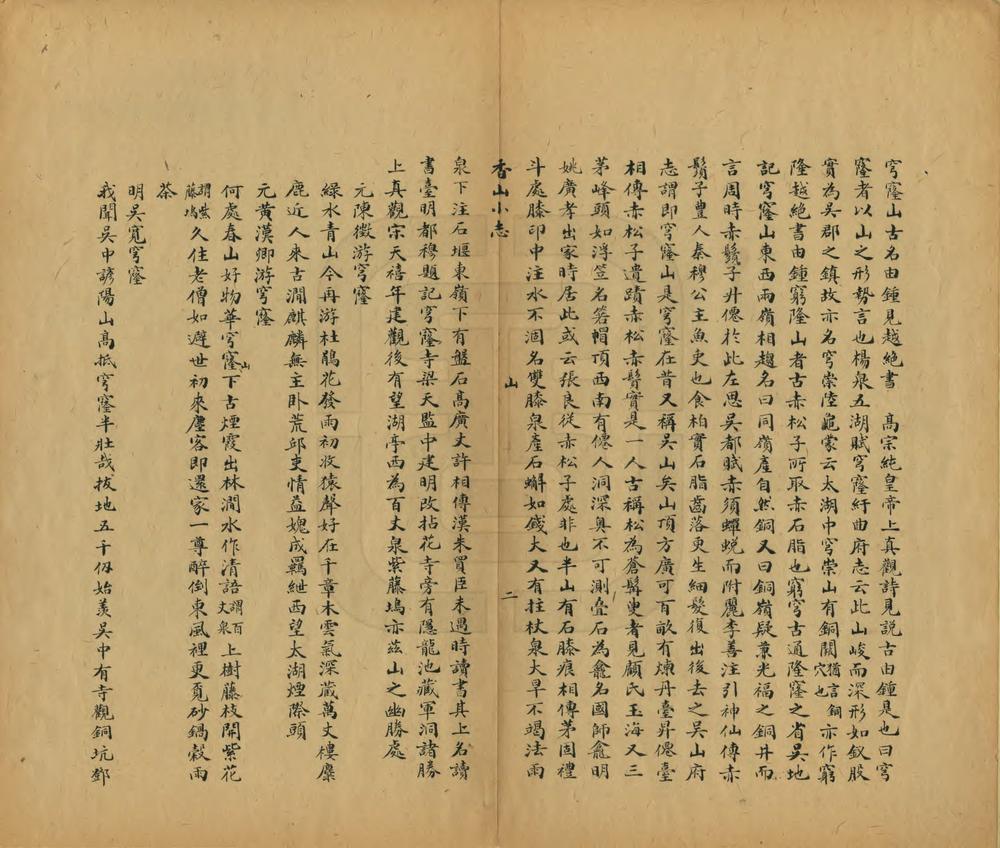 穹窿山古名由鍾見越絕書　高宗純皇帝上真觀詩見說古由鍾是也曰穹
窿者以山之形勢言也楊泉五湖賦穹窿紆曲府志云此山峻而深形如釵股
實為吳郡之鎮故亦名穹崇陸龜蒙云太湖中穹崇山有銅闕猶言銅穴也亦作窮
隆越絕書由鍾窮隆山者古赤松子所取赤石脂也窮穹古通隆窿之省吳地
記穹窿山東西兩嶺相趨名曰同嶺產自然銅又曰銅嶺疑兼光福之銅井而
言周時赤鬚子升僊於此左思吳都賦赤須蟬蛻而附麗李善注引神仙傳赤
鬚子豐人秦穆公主魚吏也食柏實石脂齒落更生細髮復出後去之吳山府
志謂即穹窿山是穹窿在昔又稱吳山矣山頂方廣可百畝有煉丹臺昇僊臺
相傳赤松子遺蹟赤松赤鬚實是一人古稱松為蒼髯叟者見顧氏玉海又三
茅峰頭如浮笠名箬帽頂西南有僊人洞深奧不可測疊石為龕名國師龕明
姚廣孝出家時居此或云張良從赤松子處非也半山有石膝痕相傳茅固禮
斗處膝印中注水不涸名雙膝泉產石蠏如錢大又有拄杖泉大旱不竭法雨
香山小志
山
二
泉下注石堰東嶺下有盤石高廣丈許相傳漢朱買臣未遇時讀書其上名讀
書臺明都穆題記穹窿寺梁天監中建明改拈花寺旁有隱龍池藏軍洞諸勝
上真觀宗天禧年建觀後有望湖亭西為百丈泉紫藤塢亦茲山之幽勝處
元陳徵游穹窿
綠水青山今再游杜鵑花發雨初收猿聲好在千章木雲氣深藏萬丈樓麋
鹿近人來古澗麒麟無主卧荒邱吏情益媿成羈紲西望太湖煙際頭
元黃漢卿游穹窿
何處春山好物華穹窿山下古煙霞出林澗水作清語謂百丈泉上樹藤枝開紫花
謂紫藤塢久住老僧如避世初來塵客即還家一尊醉倒東風裡更覓砂鍋穀雨
茶
明吳寬穹窿
我聞吳中諺陽山高抵穹窿半壯哉拔地五千仞始羨吳中有寺觀銅坑鄧